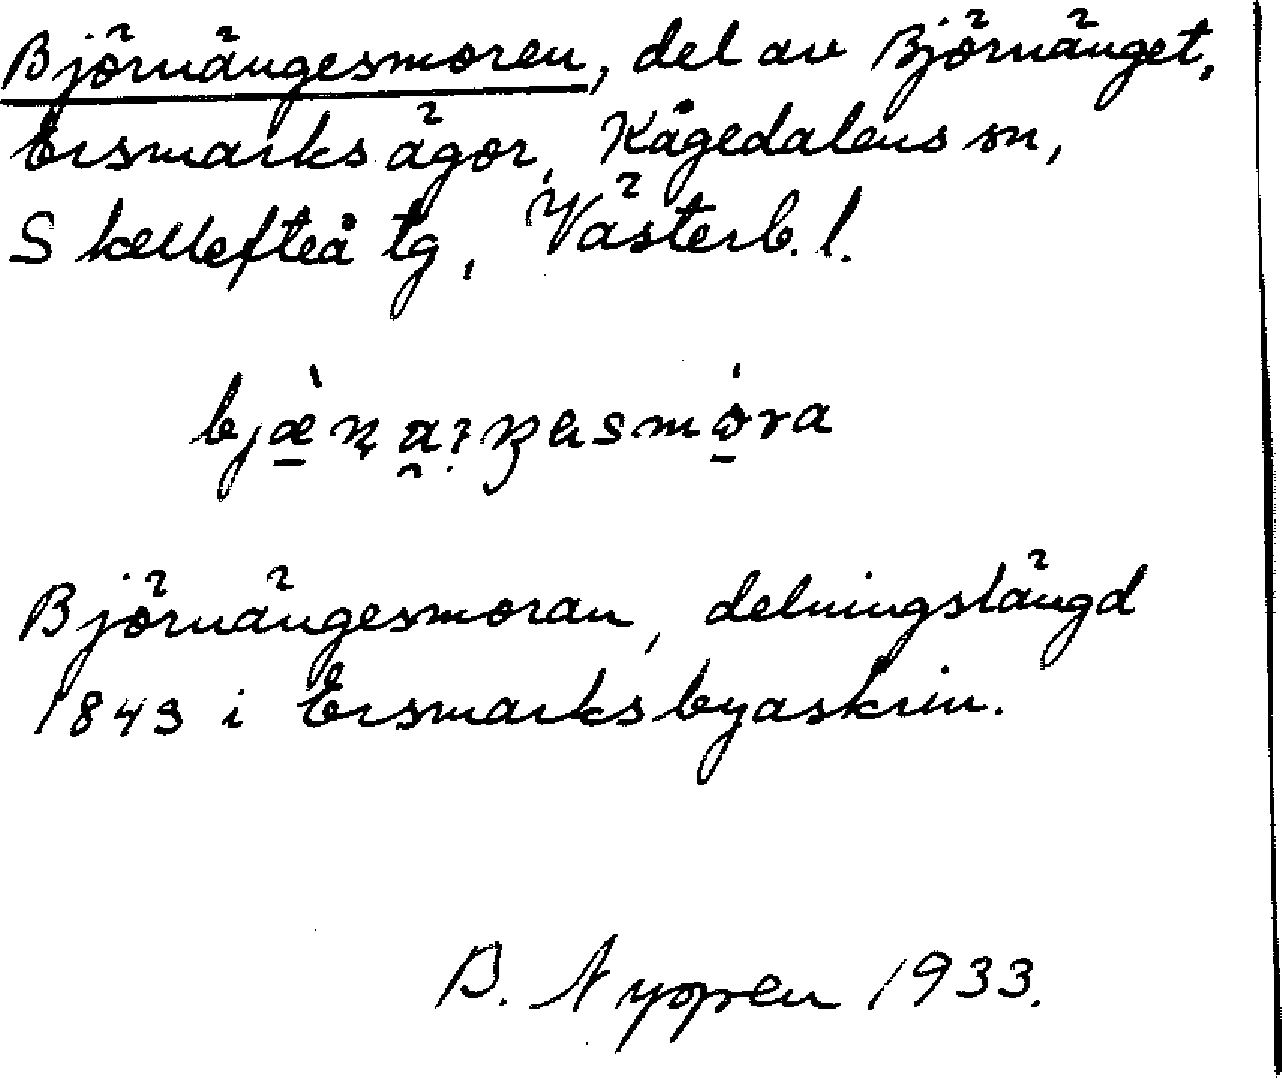 Björnängesmoren, del av Björnänget,
Ersmarks ägor, Kågedalens sn,
Skellefteå tg, Västerb. l.
Björnängesmoran, delningslängd
1843 i Ersmarks byaskrin.
B. 1933.